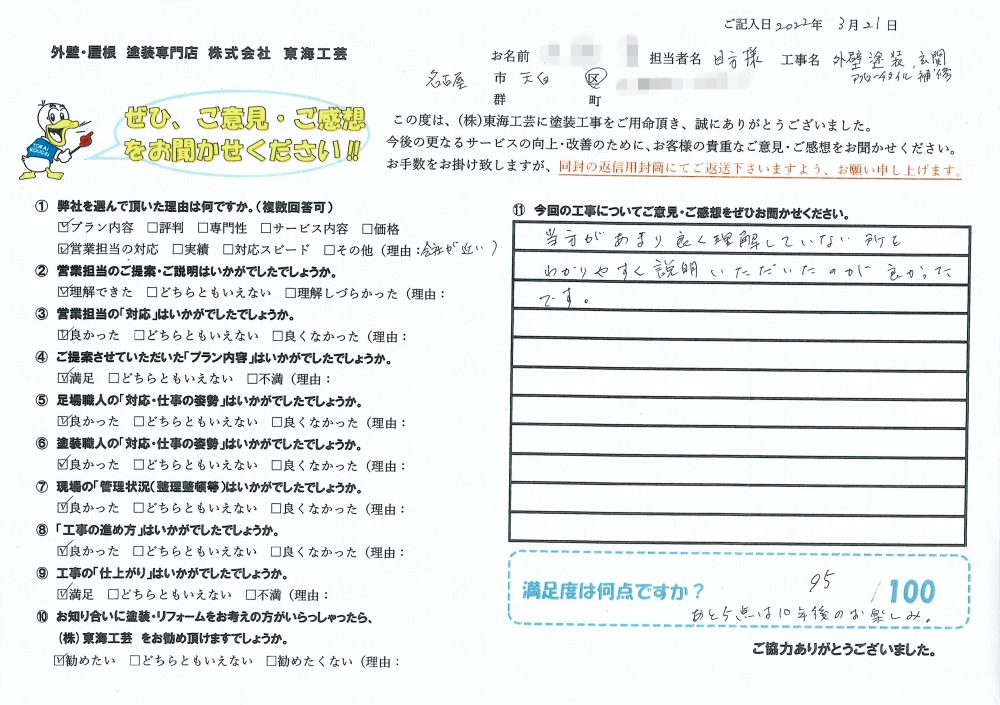 ご記入日 2022年 3月21日
外壁・屋根 塗装専門店 株式会社 東海工芸
お名前 担当者名 日方様 工事名 外壁塗装、玄関
アプローチタイル補修
名古屋 市 天白 区
群 町
TOKAI KOUGEI
ぜひ、ご意見・ご感想
をお聞かせください!!
この度は、(株)東海工芸に塗装工事をご用命頂き、誠にありがとうございました。
今後の更なるサービスの向上・改善のために、お客様の貴重なご意見・ご感想をお聞かせください。
お手数をお掛け致しますが、同封の返信用封筒にてご返送下さいますよう、お願い申し上げます。
① 弊社を選んで頂いた理由は何ですか。(複数回答可)
☑プラン内容 □評判 □専門性 □サービス内容 □価格
☑営業担当の対応 □実績 □対応スピード □その他(理由:会社が近い)
② 営業担当のご提案・ご説明はいかがでしたでしょうか。
☑理解できた □どちらともいえない □理解しづらかった(理由:
③ 営業担当の「対応」はいかがでしたでしょうか。
☑良かった □どちらともいえない □良くなかった(理由:
④ ご提案させていただいた「プラン内容」はいかがでしたでしょうか。
☑満足 □どちらともいえない □不満(理由:
⑤ 足場職人の「対応・仕事の姿勢」はいかがでしたでしょうか。
☑良かった □どちらともいえない □良くなかった(理由:
⑥ 塗装職人の「対応・仕事の姿勢」はいかがでしたでしょうか。
☑良かった □どちらともいえない □良くなかった(理由:
⑦ 現場の「管理状況(整理整頓等)はいかがでしたでしょうか。
☑良かった □どちらともいえない □良くなかった(理由:
⑧ 「工事の進め方」はいかがでしたでしょうか。
☑良かった □どちらともいえない □良くなかった(理由:
⑨ 工事の「仕上がり」はいかがでしたでしょうか。
☑満足 □どちらともいえない □不満(理由:
⑩ お知り合いに塗装・リフォームをお考えの方がいらっしゃったら、
(株)東海工芸 をお勧め頂けますでしょうか。
☑勧めたい □どちらともいえない □勧めたくない(理由:
⑪ 今回の工事についてご意見・ご感想をぜひお聞かせください。
当方があまり良く理解していない所を
わかりやすく説明いただいたのが良かった
です。
満足度は何点ですか? 95 /100
あと5点は10年後のお楽しみ。
ご協力ありがとうございました。